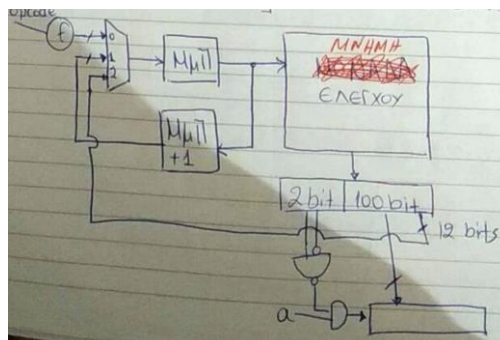 opcode
f
0
1
2
ΜμΠ
ΜΝΗΜΗ
ΕΛΕΓΧΟΥ
ΜμΠ
+1
2 bit
100 bit
12 bits
a